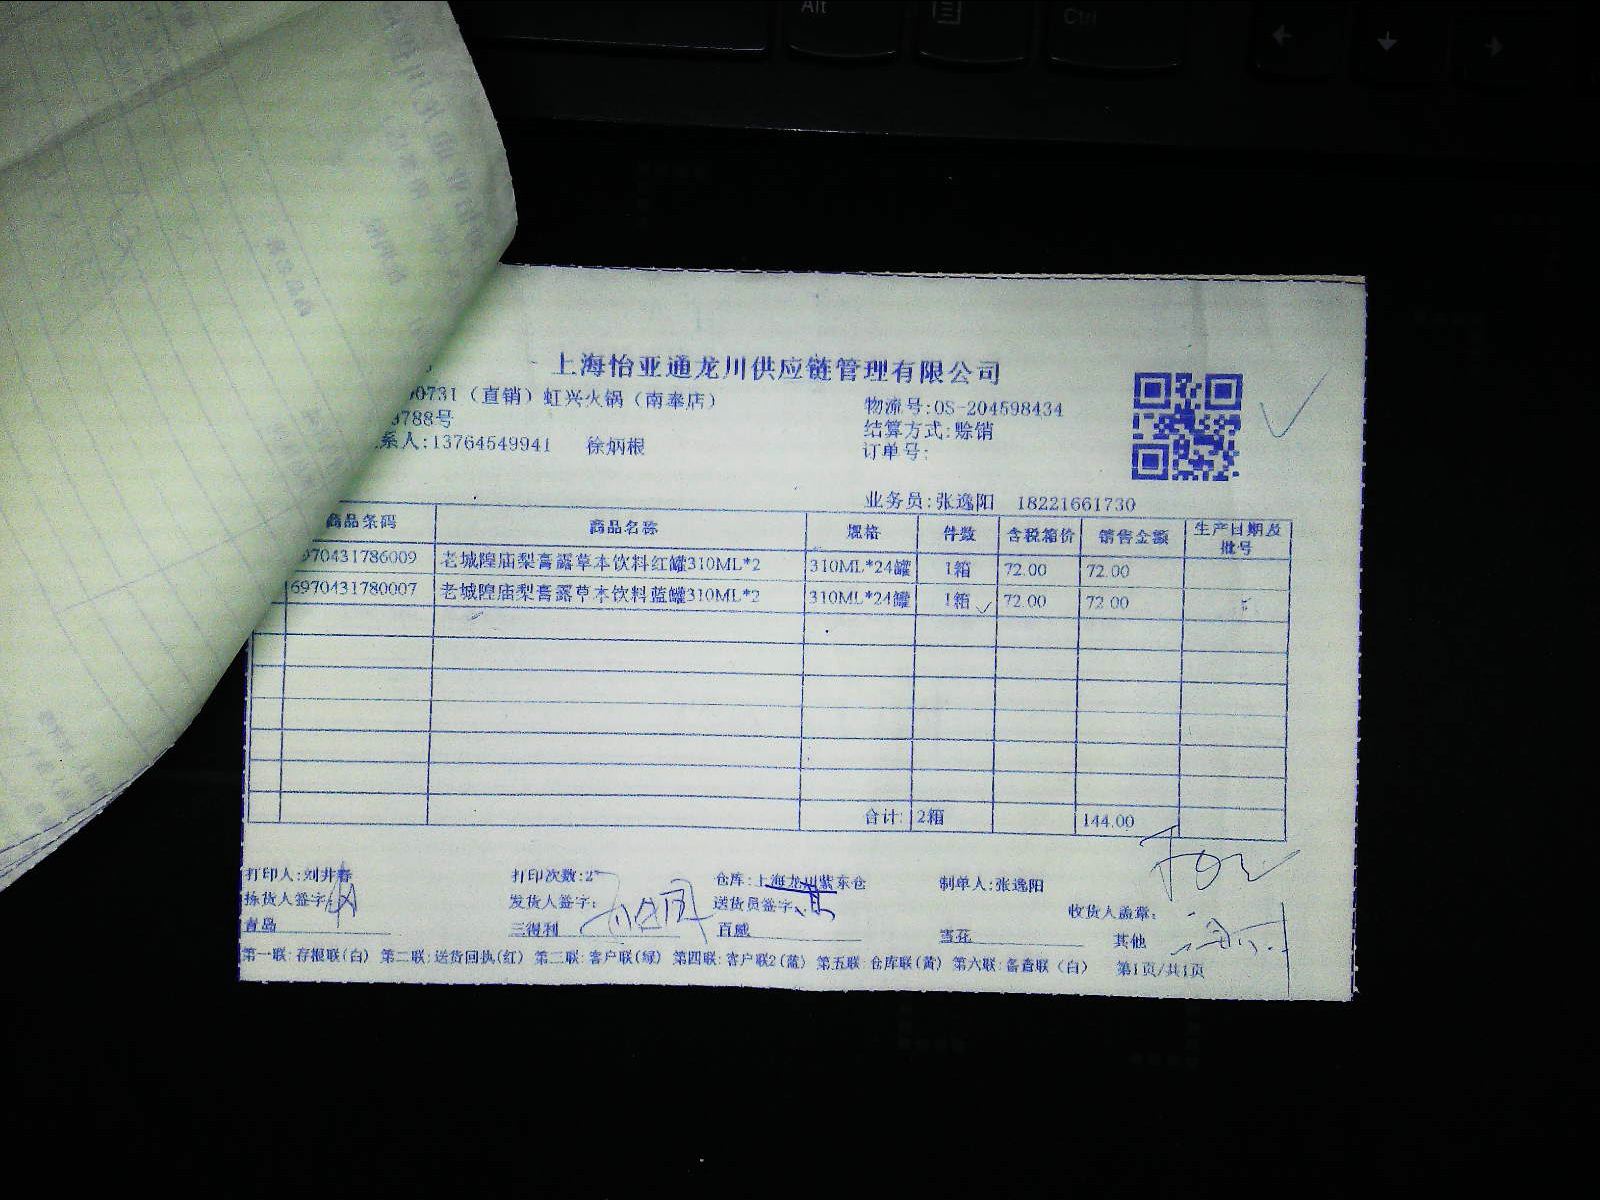 Alt
Ctrl
上海怡亚通龙川供应链管理有限公司
00731（直销）虹兴火锅（南奉店）
物流号:OS-204598434
3788号
结算方式:赊销
系人:13764549941 徐炳根
订单号:
业务员:张逸阳 18221661730
商品条码 商品名称 规格 件数 含税箱价 销售金额 生产日期及批号
970431786009 老城隍庙梨膏露草本饮料红罐310ML*2 310ML*24罐 1箱 72.00 72.00
6970431780007 老城隍庙梨膏露草本饮料蓝罐310ML*2 310ML*24罐 1箱 72.00 72.00
合计: 2箱 144.00
打印人:刘井春 打印次数:2 仓库:上海龙川紫东仓 制单人:张逸阳
拣货人签字: 发货人签字: 送货员签字: 收货人盖章:
青岛 三得利 百威 雪花 其他
第一联:存根联(白) 第二联:送货回执(红) 第三联:客户联(绿) 第四联:客户联2(蓝) 第五联:仓库联(黄) 第六联:备查联（白） 第1页/共1页